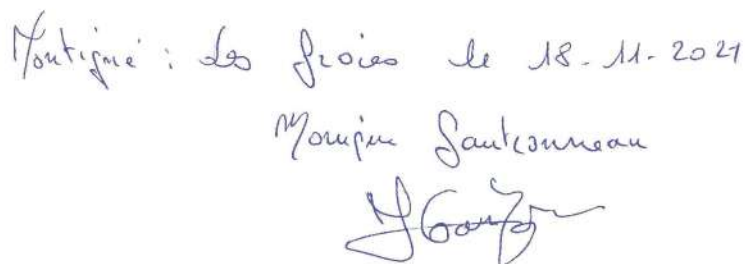 Montigné : Les Groies le 18-11-2021
Monique Gautronneau